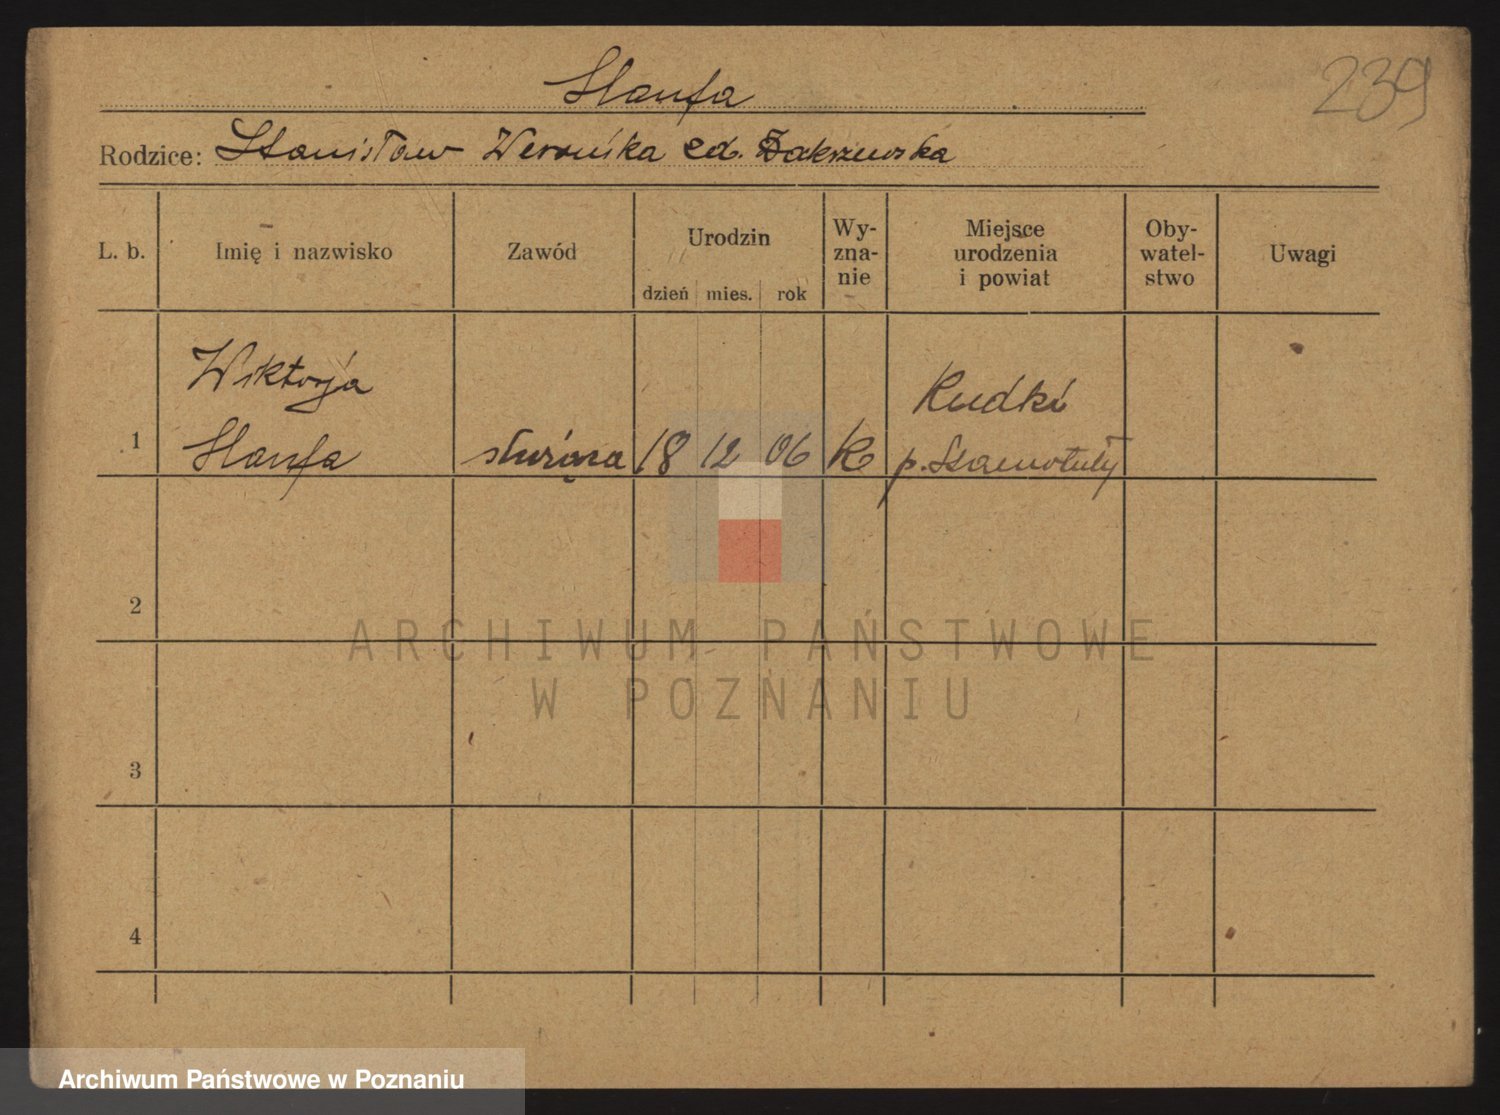 Slanfa
239
Rodzice: Stanisław Weronika zd. Zakrzewska
L. b.
Imię i nazwisko
Zawód
Urodzin
dzień mies. rok
Wy-
zna-
nie
Miejsce
urodzenia
i powiat
Oby-
watel-
stwo
Uwagi
Wiktorja
Rudki
1 Slanfa służąca 18 12 06 k p. Szamotuły
2
3
4
ARCHIWUM PAŃSTWOWE
W POZNANIU
Archiwum Państwowe w Poznaniu